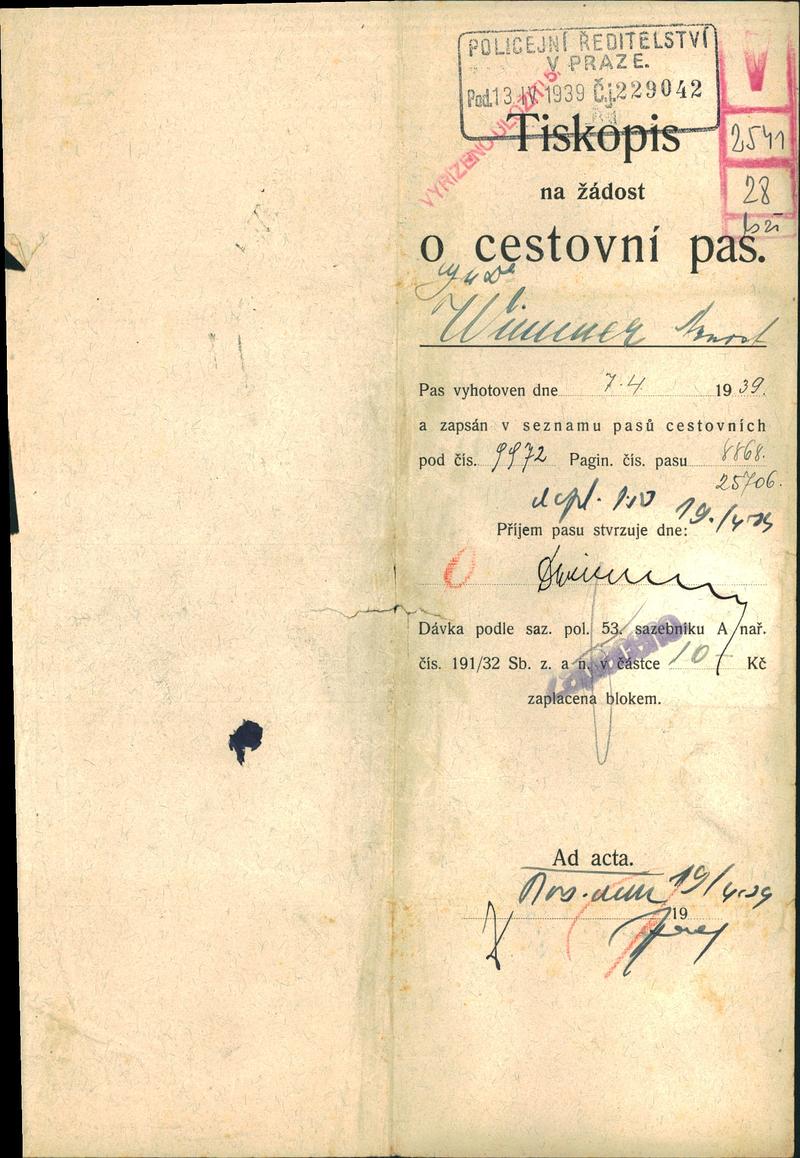 POLICEJNÍ ŘEDITELSTVÍ
V PRAZE.
Pod. 13 IV 1939 Čj. 229042
VYŘÍZENO ULOŽITI
V
2541
28
Tiskopis
na žádost
o cestovní pas.
Wimmer Arnošt
Pas vyhotoven dne 7.4. 1939.
a zapsán v seznamu pasů cestovních
pod čís. 9972 Pagin. čís. pasu 8868.
25706.
19./4.39
Příjem pasu stvrzuje dne:
Dávka podle saz. pol. 53. sazebníku A nař.
čís. 191/32 Sb. z. a n. v částce 10- Kč
zaplacena blokem.
Ad acta.
19/4.39
19